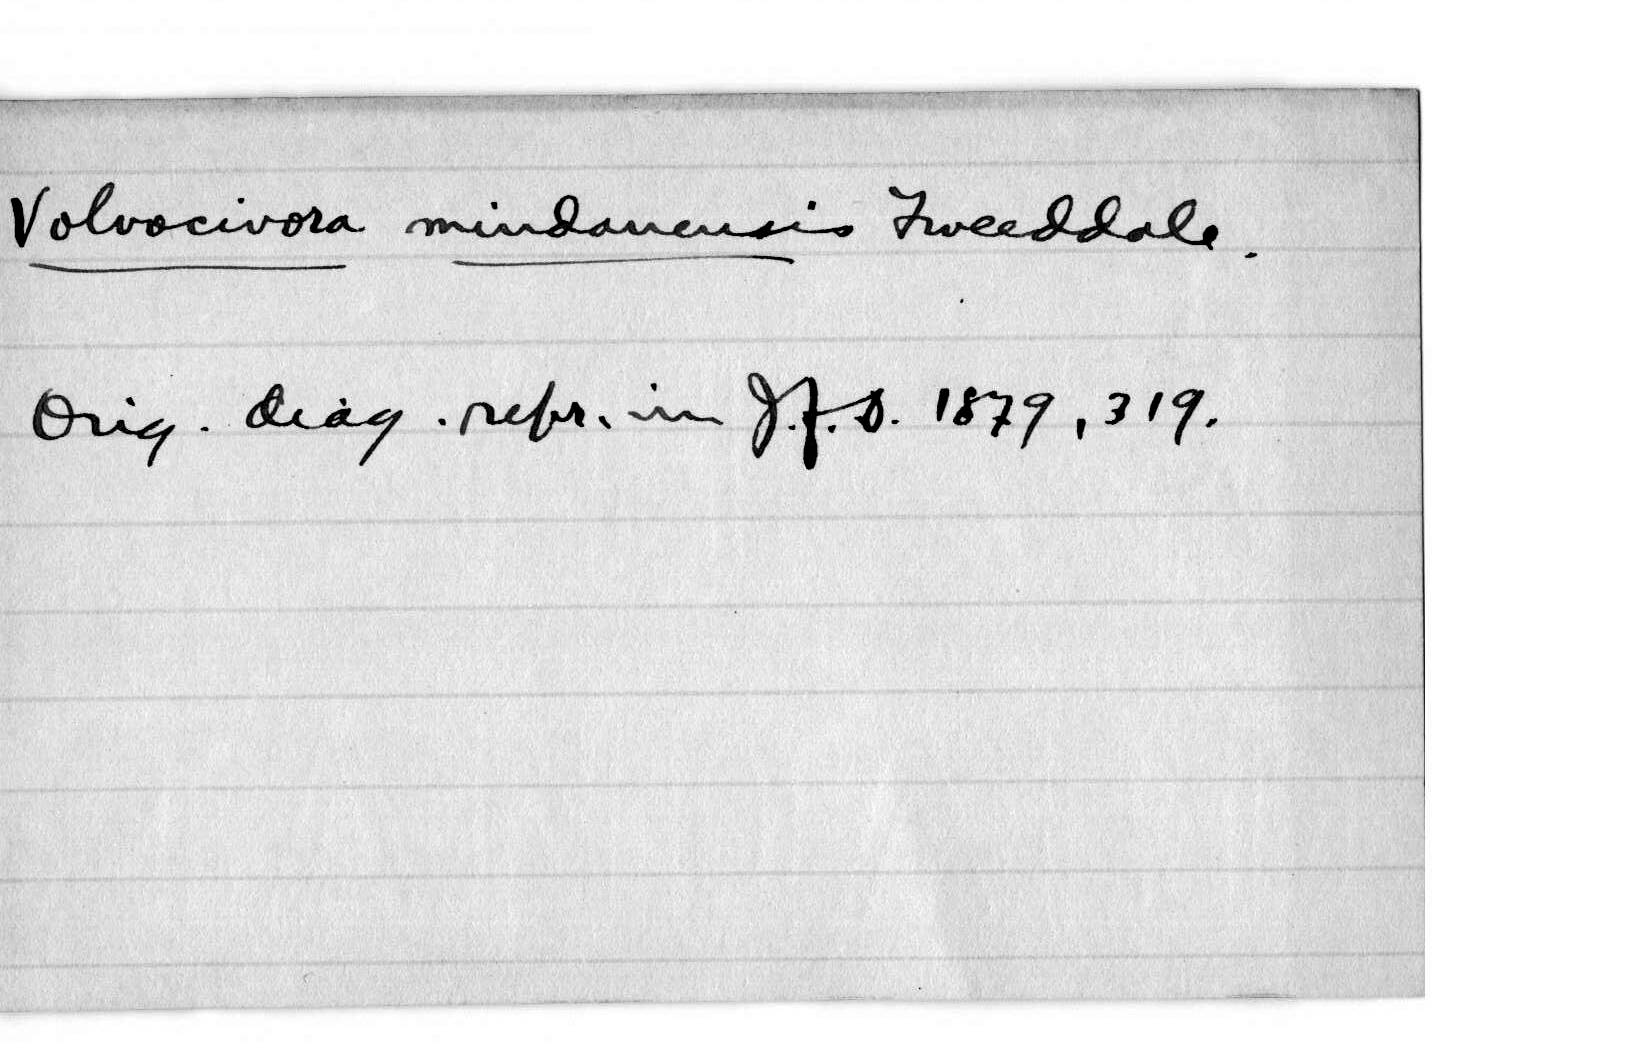 Volvocivora mindanensis Tweeddale.
Orig. diag. repr. in J.f.O. 1879, 319.